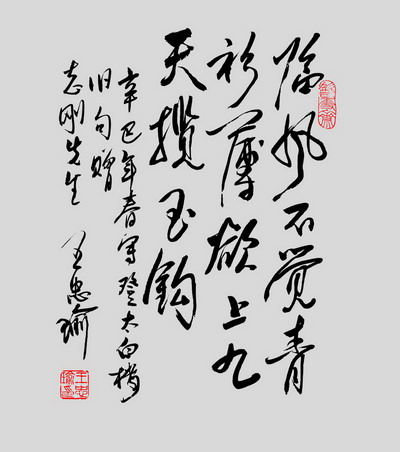 临风不觉青
衫薄欲上九
天揽玉钩
辛巳年春写登太白楼
旧句赠
志刚先生
王忠瑜
王忠瑜印